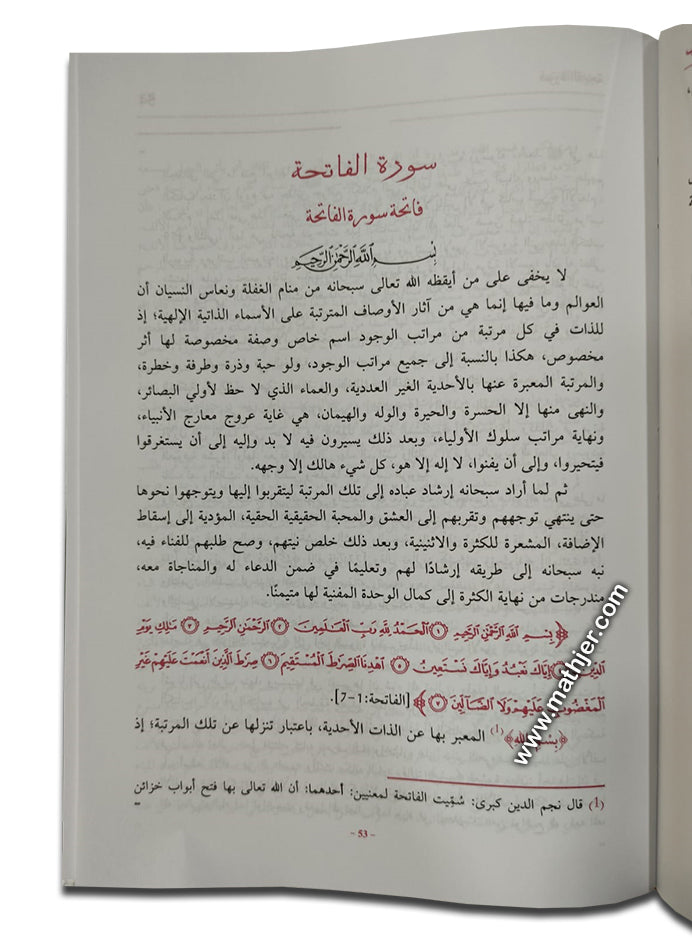 سورة الفاتحة
فاتحة سورة الفاتحة
بِسْمِ ٱللَّهِ ٱلرَّحْمَٰنِ ٱلرَّحِيمِ
لا يخفى على من أيقظه الله تعالى سبحانه من منام الغفلة ونعاس النسيان أن
العوالم وما فيها إنما هي من آثار الأوصاف المترتبة على الأسماء الذاتية الإلهية؛ إذ
للذات في كل مرتبة من مراتب الوجود اسم خاص وصفة مخصوصة لها أثر
مخصوص، هكذا بالنسبة إلى جميع مراتب الوجود، ولو حبة وذرة وطرفة وخطرة،
والمرتبة المعبرة عنها بالأحدية الغير العددية، والعماء الذي لا حظ لأولي البصائر،
والنهى منها إلا الحسرة والحيرة والوله والهيمان، هي غاية عروج معارج الأنبياء،
ونهاية مراتب سلوك الأولياء، وبعد ذلك يسيرون فيه لا بد وإليه إلى أن يستغرقوا
فيتحيروا، وإلى أن يفنوا، لا إله إلا هو، كل شيء هالك إلا وجهه.
ثم لما أراد سبحانه إرشاد عباده إلى تلك المرتبة ليتقربوا إليها ويتوجهوا نحوها
حتى ينتهي توجههم وتقربهم إلى العشق والمحبة الحقيقية الحقية، المؤدية إلى إسقاط
الإضافة، المشعرة للكثرة والاثنينية، وبعد ذلك خلص نيتهم، وصح طلبهم للفناء فيه،
نبه سبحانه إلى طريقه إرشادًا لهم وتعليمًا في ضمن الدعاء له والمناجاة معه،
مندرجات من نهاية الكثرة إلى كمال الوحدة المفنية لها متيمنًا.
﴿بِسْمِ ٱللَّهِ ٱلرَّحْمَٰنِ ٱلرَّحِيمِ ۝١ ٱلْحَمْدُ لِلَّهِ رَبِّ ٱلْعَٰلَمِينَ ۝٢ ٱلرَّحْمَٰنِ ٱلرَّحِيمِ ۝٣ مَٰلِكِ يَوْمِ
ٱلدِّينِ ۝٤ إِيَّاكَ نَعْبُدُ وَإِيَّاكَ نَسْتَعِينُ ۝٥ ٱهْدِنَا ٱلصِّرَٰطَ ٱلْمُسْتَقِيمَ ۝٦ صِرَٰطَ ٱلَّذِينَ أَنْعَمْتَ عَلَيْهِمْ غَيْرِ
ٱلْمَغْضُوبِ عَلَيْهِمْ وَلَا ٱلضَّآلِّينَ ۝٧﴾ [الفاتحة:1-7].
﴿بِسْمِ ٱللَّهِ﴾(1) المعبر بها عن الذات الأحدية، باعتبار تنزلها عن تلك المرتبة؛ إذ
(1) قال نجم الدين كبرى: سُمِّيت الفاتحة لمعنيين: أحدهما: أن الله تعالى بها فتح أبواب خزائن =
- 53 -
www.mathjer.com